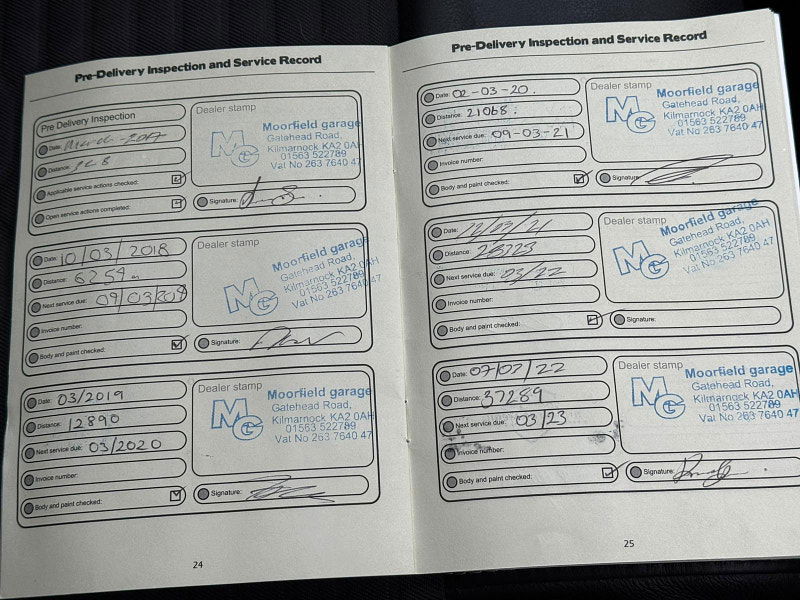 Pre-Delivery Inspection and Service Record
Pre Delivery Inspection
Date: March - 2017
Distance:
Applicable service actions checked:
Open service actions completed:
Dealer stamp
MG
Moorfield garage
Gatehead Road,
Kilmarnock KA2 0AH
01563 522789
Vat No 263 7640 47
Signature:
Date: 10/03/2018
Distance: 6254 m
Next service due: 09/03/
Invoice number:
Body and paint checked:
Dealer stamp
MG
Moorfield garage
Gatehead Road,
Kilmarnock KA2 0AH
01563 522789
Vat No 263 7640 47
Signature:
Date: 03/2019
Distance: 12890
Next service due: 03/2020
Invoice number:
Body and paint checked:
Dealer stamp
MG
Moorfield garage
Gatehead Road,
Kilmarnock KA2 0AH
01563 522789
Vat No 263 7640 47
Signature:
24
Pre-Delivery Inspection and Service Record
Date: 02-03-20.
Distance: 21068.
Next service due: 09-03-21
Invoice number:
Body and paint checked:
Dealer stamp
MG
Moorfield garage
Gatehead Road,
Kilmarnock KA2 0AH
01563 522789
Vat No 263 7640 47
Signature:
Date: 12/03/21
Distance: 28723
Next service due: 03/22
Invoice number:
Body and paint checked:
Dealer stamp
MG
Moorfield garage
Gatehead Road,
Kilmarnock KA2 0AH
01563 522789
Vat No 263 7640 47
Signature:
Date: 07/02/22
Distance: 37289
Next service due: 03/23
Invoice number:
Body and paint checked:
Dealer stamp
MG
Moorfield garage
Gatehead Road,
Kilmarnock KA2 0AH
01563 522789
Vat No 263 7640 47
Signature:
25